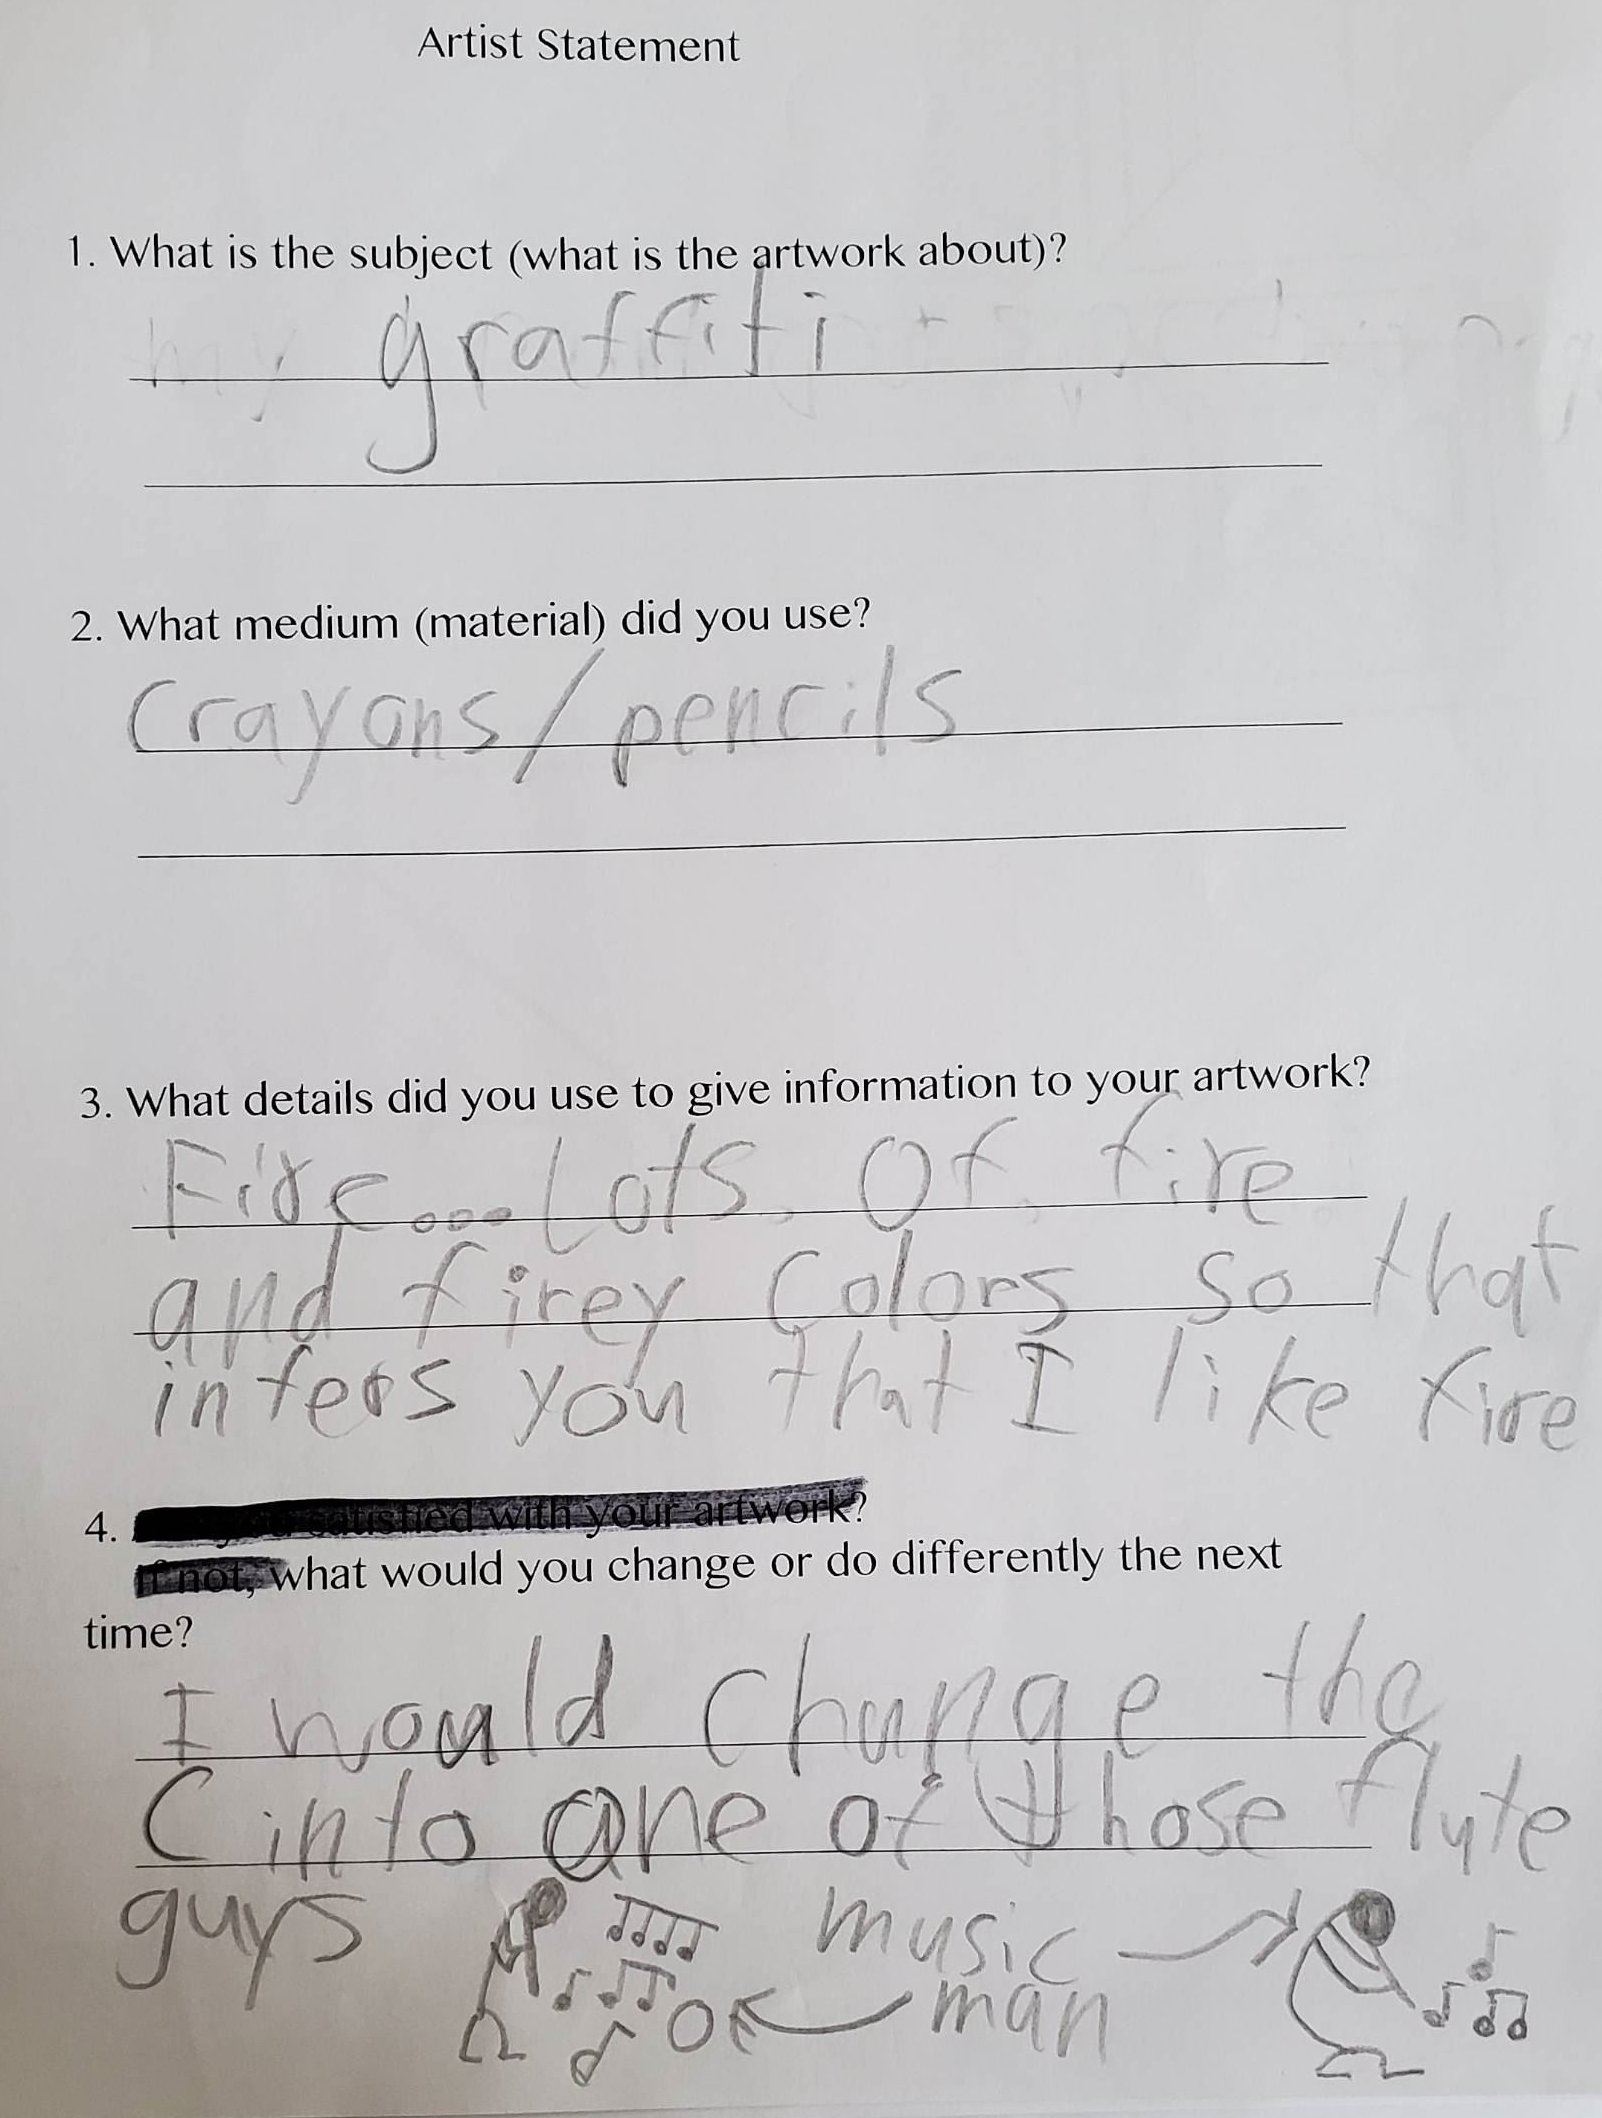 Artist Statement
1. What is the subject (what is the artwork about)?
my graffiti
2. What medium (material) did you use?
Crayons/pencils
3. What details did you use to give information to your artwork?
Fire...Lots of fire
and firey Colors so that
infers you that I like fire
4. you satisfied with your artwork?
If not, what would you change or do differently the next
time?
I would change the
C into one of those flute
guys music
man